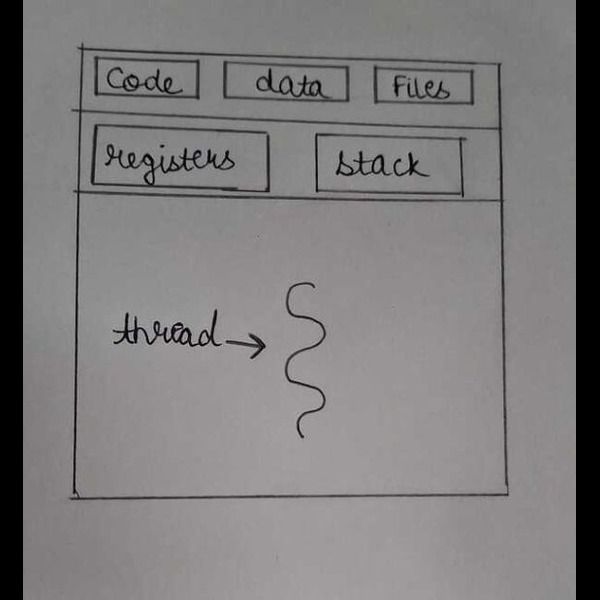 Code data Files
registers stack
thread